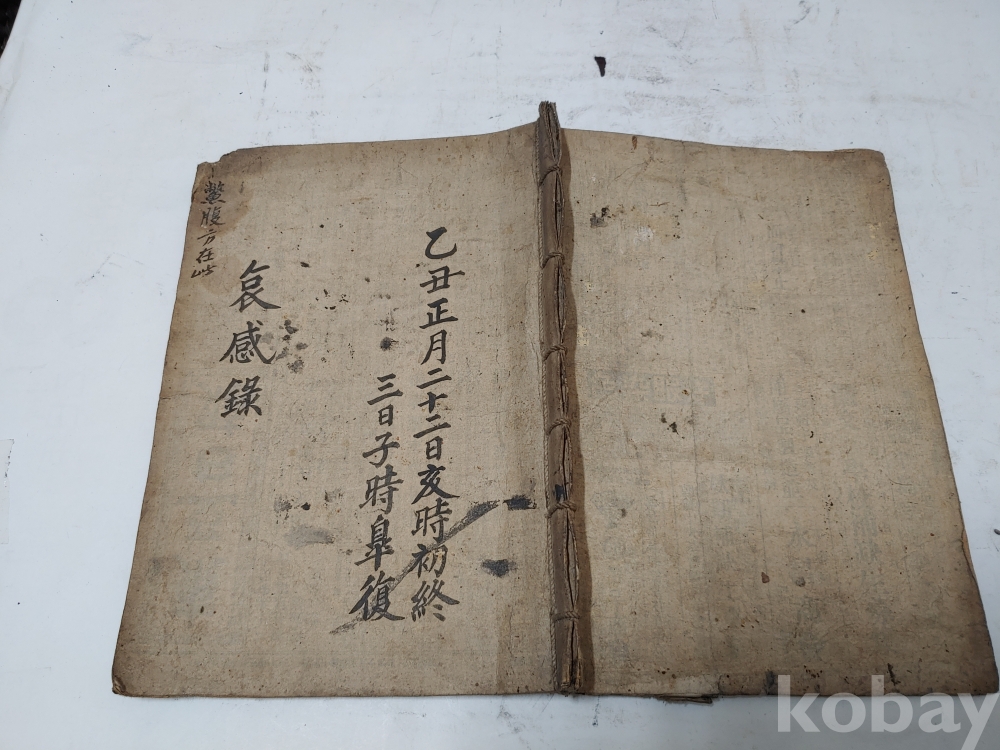 乙丑正月二十二日亥時初終
三日子時皐復
哀感錄
鱉腹方在此
kobay